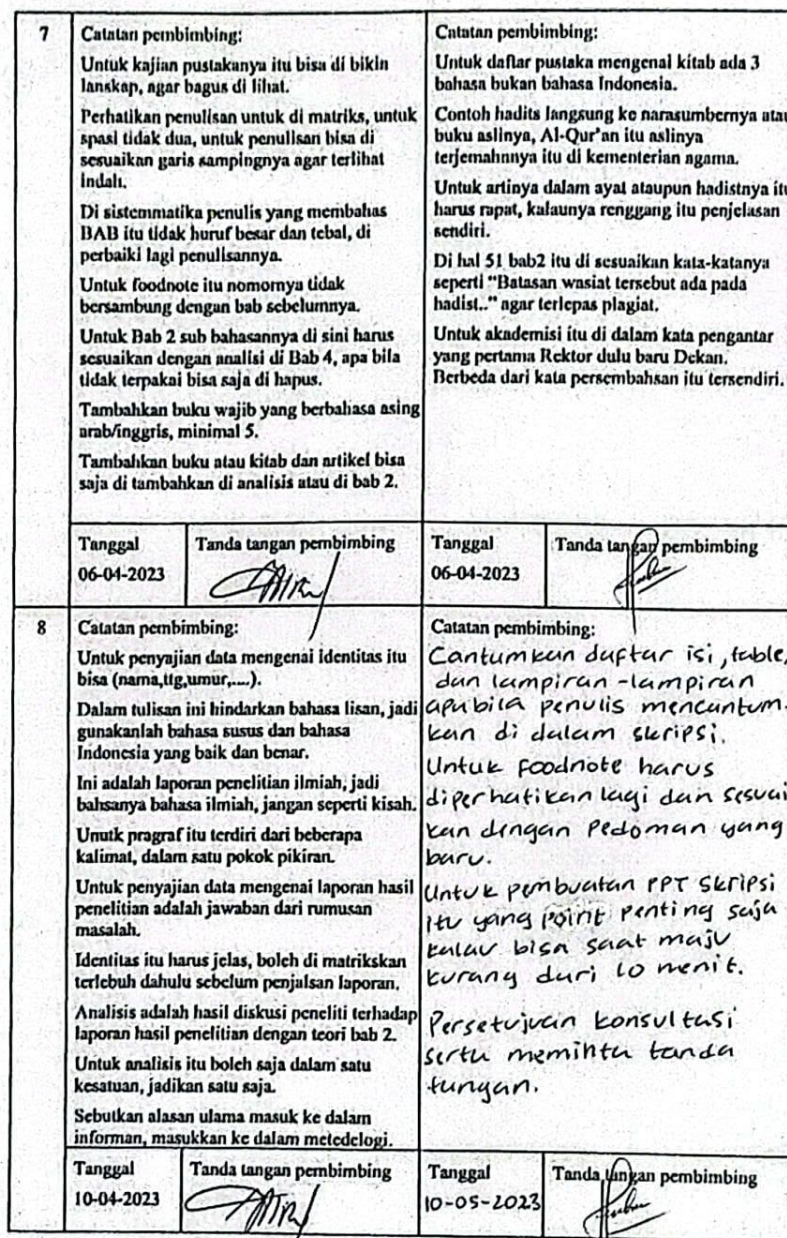 7
Catatan pembimbing:
Untuk kajian pustakanya itu bisa di bikin
lanskap, agar bagus di lihat.
Perhatikan penulisan untuk di matriks, untuk
spasi tidak dua, untuk penulisan bisa di
sesuaikan garis sampingnya agar terlihat
Indah.
Di sistemmatika penulis yang membahas
BAB itu tidak huruf besar dan tebal, di
perbaiki lagi penulisannya.
Untuk foodnote itu nomornya tidak
bersambung dengan bab sebelumnya.
Untuk Bab 2 sub bahasannya di sini harus
sesuaikan dengan analisi di Bab 4, apa bila
tidak terpakai bisa saja di hapus.
Tambahkan buku wajib yang berbahasa asing
arab/inggris, minimal 5.
Tambahkan buku atau kitab dan artikel bisa
saja di tambahkan di analisis atau di bab 2.
Catatan pembimbing:
Untuk daftar pustaka mengenai kitab ada 3
bahasa bukan bahasa Indonesia.
Contoh hadits langsung ke narasumbernya atau
buku aslinya, Al-Qur'an itu aslinya
terjemahnnya itu di kementerian agama.
Untuk artinya dalam ayat ataupun hadistnya itu
harus rapat, kalaunya renggang itu penjelasan
sendiri.
Di hal 51 bab2 itu di sesuaikan kata-katanya
seperti "Batasan wasiat tersebut ada pada
hadist.." agar terlepas plagiat.
Untuk akademisi itu di dalam kata pengantar
yang pertama Rektor dulu baru Dekan.
Berbeda dari kata persembahsan itu tersendiri.
Tanggal
06-04-2023
Tanda tangan pembimbing
Tanggal
06-04-2023
Tanda tangan pembimbing
8
Catatan pembimbing:
Untuk penyajian data mengenai identitas itu
bisa (nama,ttg,umur,....).
Dalam tulisan ini hindarkan bahasa lisan, jadi
gunakanlah bahasa susus dan bahasa
Indonesia yang baik dan benar.
Ini adalah laporan penelitian ilmiah, jadi
bahsanya bahasa ilmiah, jangan seperti kisah.
Unutk pragraf itu terdiri dari beberapa
kalimat, dalam satu pokok pikiran.
Untuk penyajian data mengenai laporan hasil
penelitian adalah jawaban dari rumusan
masalah.
Identitas itu harus jelas, boleh di matrikskan
terlebuh dahulu sebelum penjalsan laporan.
Analisis adalah hasil diskusi peneliti terhadap
laporan hasil penelitian dengan teori bab 2.
Untuk analisis itu boleh saja dalam satu
kesatuan, jadikan satu saja.
Sebutkan alasan ulama masuk ke dalam
informan, masukkan ke dalam metedelogi.
Catatan pembimbing:
Cantumkan daftar isi, table,
dan lampiran-lampiran
apabila penulis mencantum-
kan di dalam skripsi.
Untuk foodnote harus
diperhatikan lagi dan sesuai
kan dengan Pedoman yang
baru.
Untuk pembuatan PPT skripsi
itu yang point penting saja
kalau bisa saat maju
kurang dari 10 menit.
Persetujuan konsultasi
serta meminta tanda
tangan.
Tanggal
10-04-2023
Tanda tangan pembimbing
Tanggal
10-05-2023
Tanda tangan pembimbing